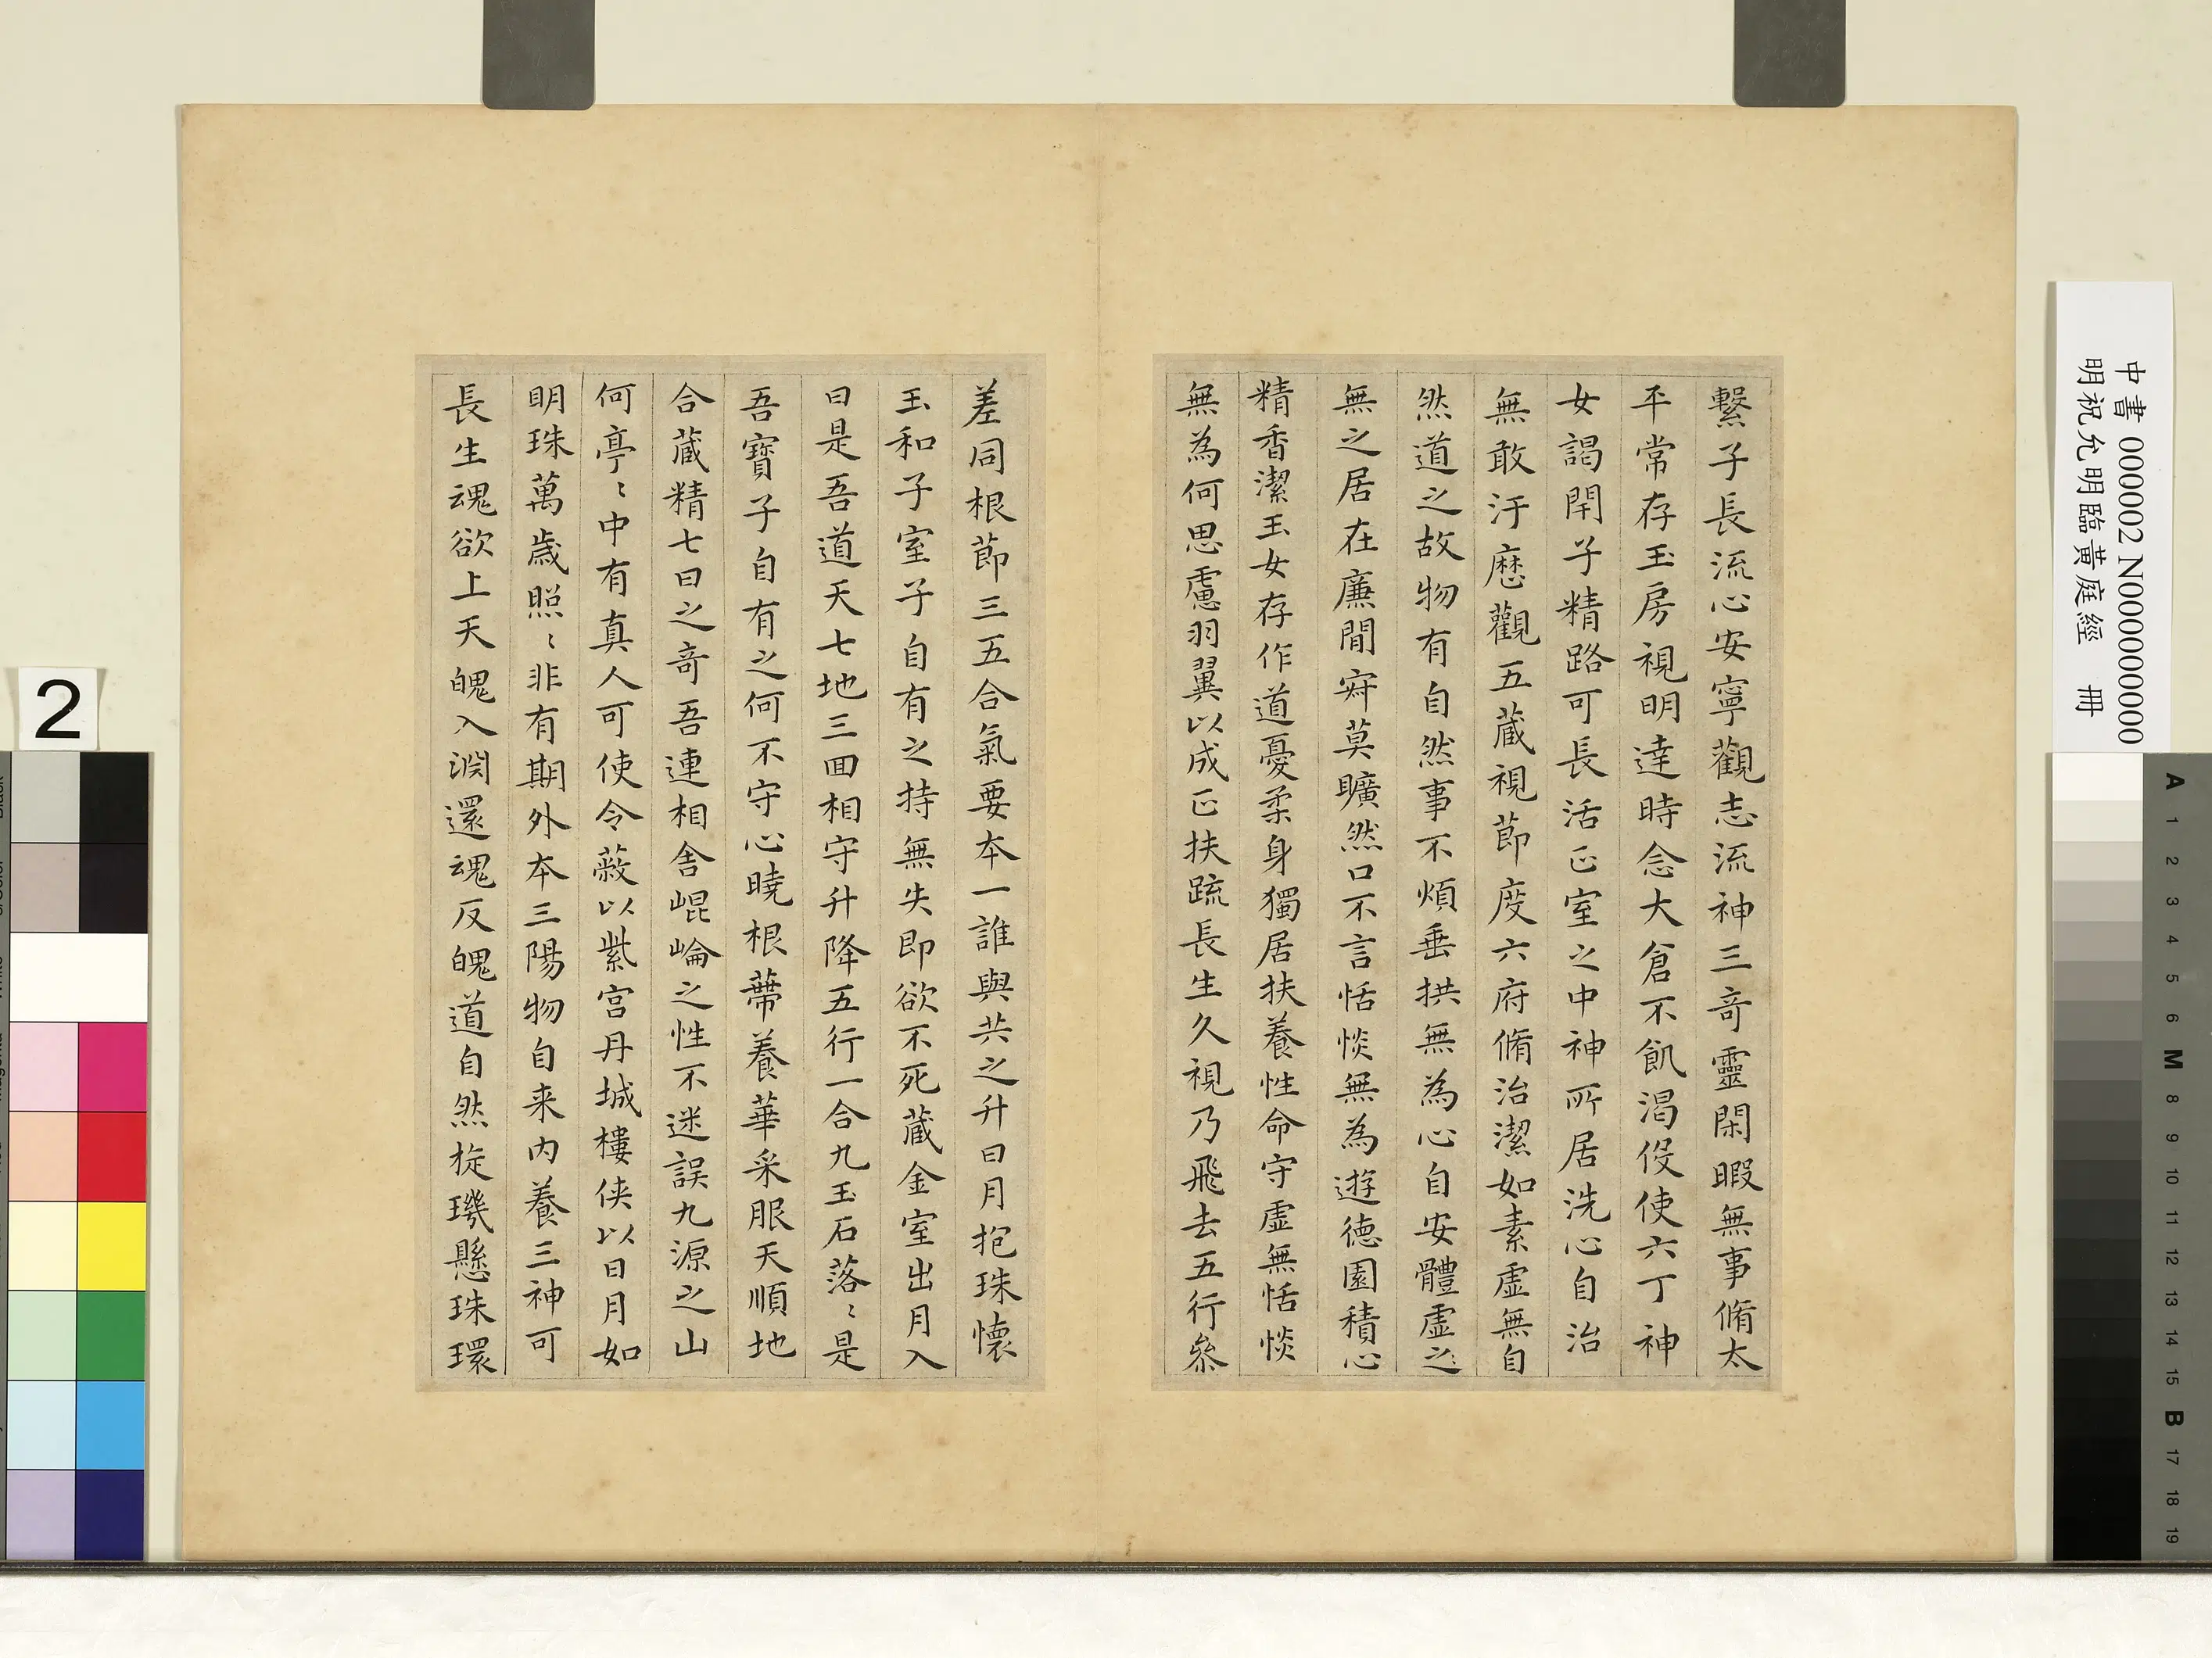 繫子長流心安寧觀志流神三奇靈閑暇無事脩太
平常存玉房視明達時念大倉不飢渴伇使六丁神
女謁閇子精路可長活正室之中神所居洗心自治
無敢汙歷觀五藏視節度六府脩治潔如素虛無自
然道之故物有自然事不煩垂拱無為心自安體虛之
無之居在廉間寂莫曠然口不言恬惔無為遊德園積心
精香潔玉女存作道憂柔身獨居扶養性命守虛無恬惔
無為何思慮羽翼以成正扶疏長生久視乃飛去五行參
差同根節三五合氣要本一誰與共之升日月抱珠懷
玉和子室子自有之持無失即欲不死藏金室出月入
日是吾道天七地三回相守升降五行一合九玉石落〻是
吾寶子自有之何不守心曉根蔕養華采服天順地
合藏精七日之奇吾連相舍崐崘之性不迷誤九源之山
何亭〻中有真人可使令蔽以紫宮丹城樓俠以日月如
明珠萬歲照〻非有期外本三陽物自来內養三神可
長生魂欲上天魄入淵還魂反魄道自然旋璣懸珠環
中書 000002 N000000000
明祝允明臨黃庭經 冊
2
A 1 2 3 4 5 6 M 8 9 10 11 12 13 14 15 B 17 18 19